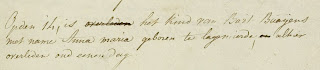 Opden 14, is overleden het kind van Bart Baaijens
met name Anna maria geboren te lagemierde, en alhier
overleden oud eenen dag.